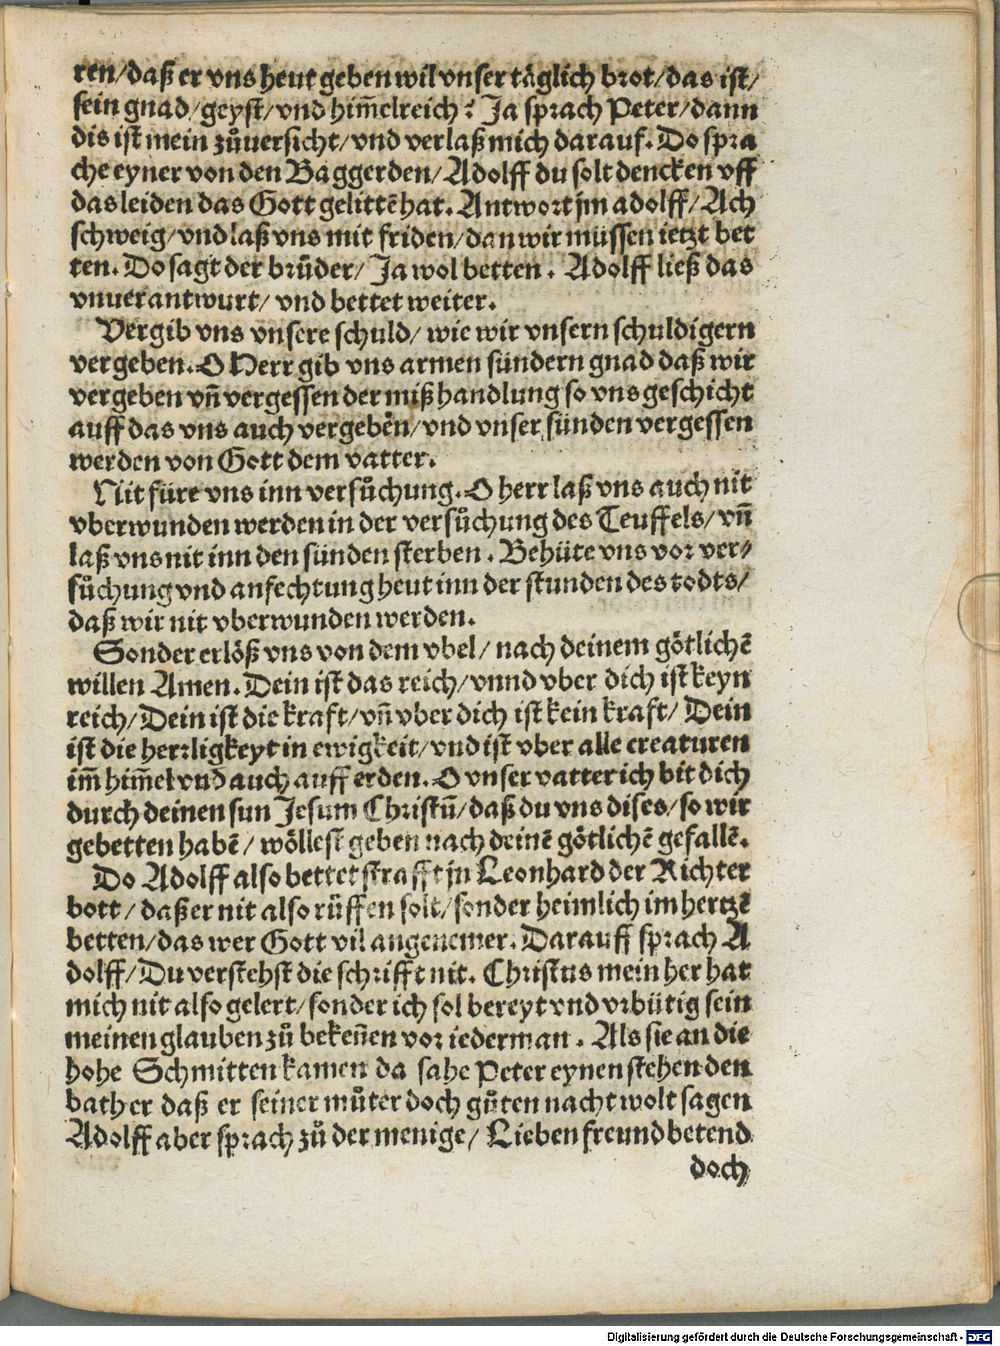 ren/daß er vns heut geben wil vnser täglich brot/das ist/
sein gnad/geyst/vnd him̃elreich? Ja sprach Peter/dann
dis ist mein zůuersicht/vnd verlaß mich darauf. Do spra
che eyner von den Baggerden/Adolff du solt dencken vff
das leiden das Gott gelittẽ hat. Antwort jm adolff/Ach
schweig/vnd laß vns mit friden/dan wir müssen ietzt bet
ten. Do sagt der brůder/Ja wol betten. Adolff ließ das
vnuerantwurt/vnd bettet weiter.
Vergib vns vnsere schuld/wie wir vnsern schuldigern
vergeben. O Herr gib vns armen sündern gnad daß wir
vergeben vñ vergessen der mißhandlung so vns geschicht
auff das vns auch vergebẽn/vnd vnser sünden vergessen
werden von Gott dem vatter.
Nit füre vns inn versůchung. O herr laß vns auch nit
vberwunden werden in der versůchung des Teuffels/vñ
laß vns nit inn den sünden sterben. Behüte vns vor ver⸗
sůchung vnd anfechtung heut inn der stunden des todts/
daß wir nit vberwunden werden.
Sonder erlöß vns von dem vbel/nach deinem götlichẽ
willen Amen. Dein ist das reich/vnnd vber dich ist keyn
reich/Dein ist die kraft/vñ vber dich ist kein kraft/Dein
ist die herrligkeyt in ewigkeit/vnd ist vber alle creaturen
im̃ him̃el vnd auch auff erden. O vnser vatter ich bit dich
durch deinen sun Jesum Christũ/daß du vns dises/so wir
gebetten habẽ/wöllest geben nach deinẽ götlichẽ gefallẽ.
Do Adolff also bettet strafft jn Leonhard der Richter
bott/daß er nit also rüffen solt/sonder heimlich im hertzẽ
betten/das wer Gott vil angenemer. Darauff sprach A
dolff/Du verstehst die schrifft nit. Christus mein her hat
mich nit also gelert/sonder ich sol bereyt vnd vrbütig sein
meinen glauben zů bekeñen vor iederman. Als sie an die
hohe Schmitten kamen da sahe Peter eynen stehen den
bath er daß er seiner můter doch gůten nacht wolt sagen
Adolff aber sprach zů der menige/Lieben freund betend
doch
Digitalisierung gefördert durch die Deutsche Forschungsgemeinschaft - DFG